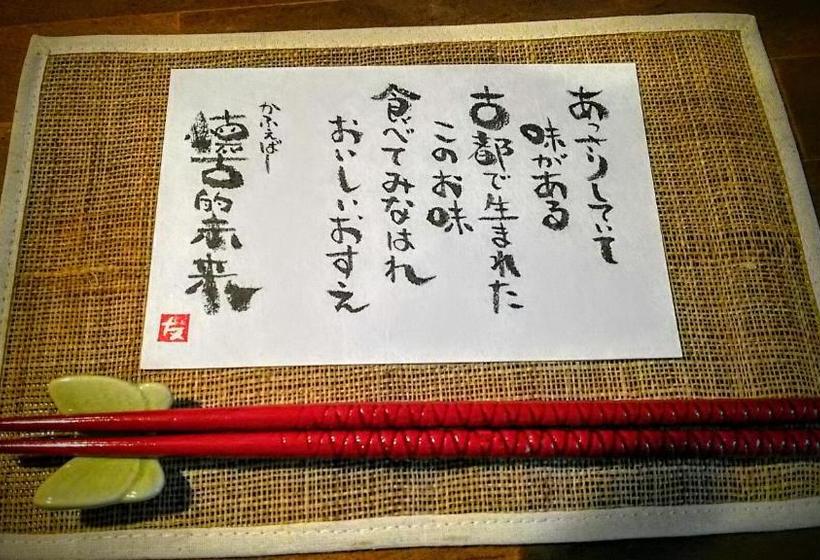 あっさりしていて
味がある
古都で生まれた
このお味
食べてみなはれ
おいしいおすえ
かふぇばー
懐古的未来
友